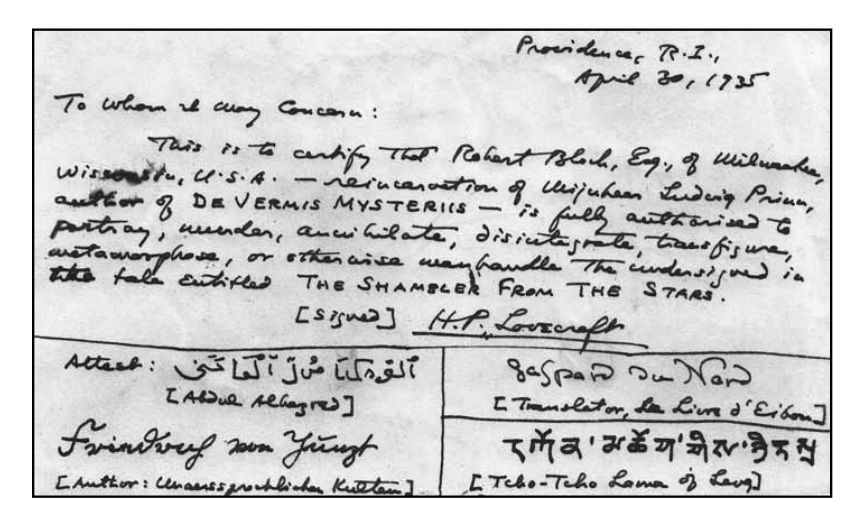 Providence, R.I.,
April 30, 1935
To whom it may Concern:
This is to certify that Robert Bloch, Esq., of Milwaukee,
Wisconsin, U.S.A. — reincarnation of Mijnheer Ludwig Prinn,
author of DE VERMIS MYSTERIIS — is fully authorised to
portray, murder, annihilate, disintegrate, transfigure,
metamorphose, or otherwise manhandle the undersigned in
the tale entitled THE SHAMBLER FROM THE STARS.
[Signed] H.P. Lovecraft
Attest:
[Abdul Alhazred]
Gaspard du Nord
[Translator, Le Livre d'Eibon]
Friedrich von Junzt
[Author: Unaussprechlichen Kulten]
[Tcho-Tcho Lama of Leng]